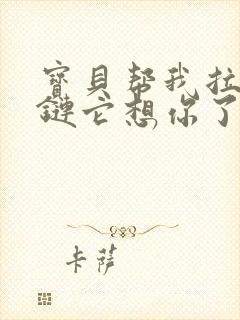 寶貝幇我拉
鏈它想你了
卡薩